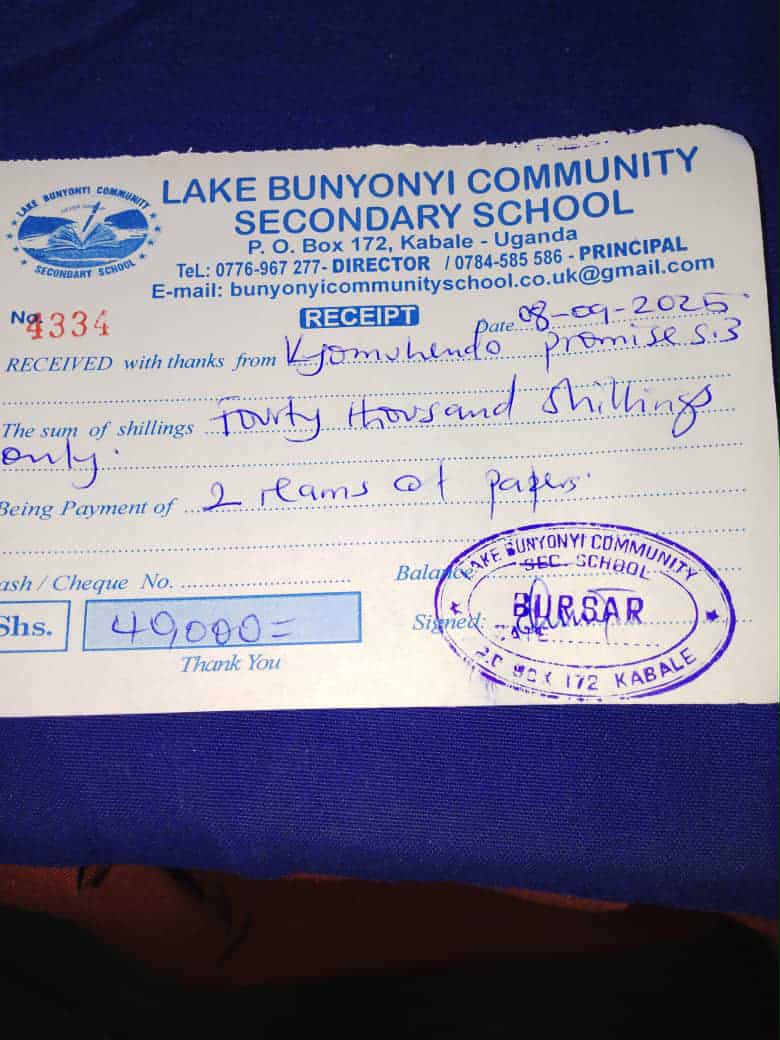 LAKE BUNYONYI COMMUNITY
SECONDARY SCHOOL
LAKE BUNYONYI COMMUNITY
SECONDARY SCHOOL
P. O. Box 172, Kabale - Uganda
TeL: 0776-967 277- DIRECTOR / 0784-585 586 - PRINCIPAL
E-mail: bunyonyicommunityschool.co.uk@gmail.com
No. 4334
RECEIPT
Date 08-09-2025
RECEIVED with thanks from Kyomuhendo promise S.3
The sum of shillings Fourty thousand shillings
only.
Being Payment of 2 reams of papers.
ash / Cheque No.
Balance
Shs. 49,000=
Signed:
Thank You
LAKE BUNYONYI COMMUNITY
SEC. SCHOOL
BURSAR
P.O BOX 172 KABALE